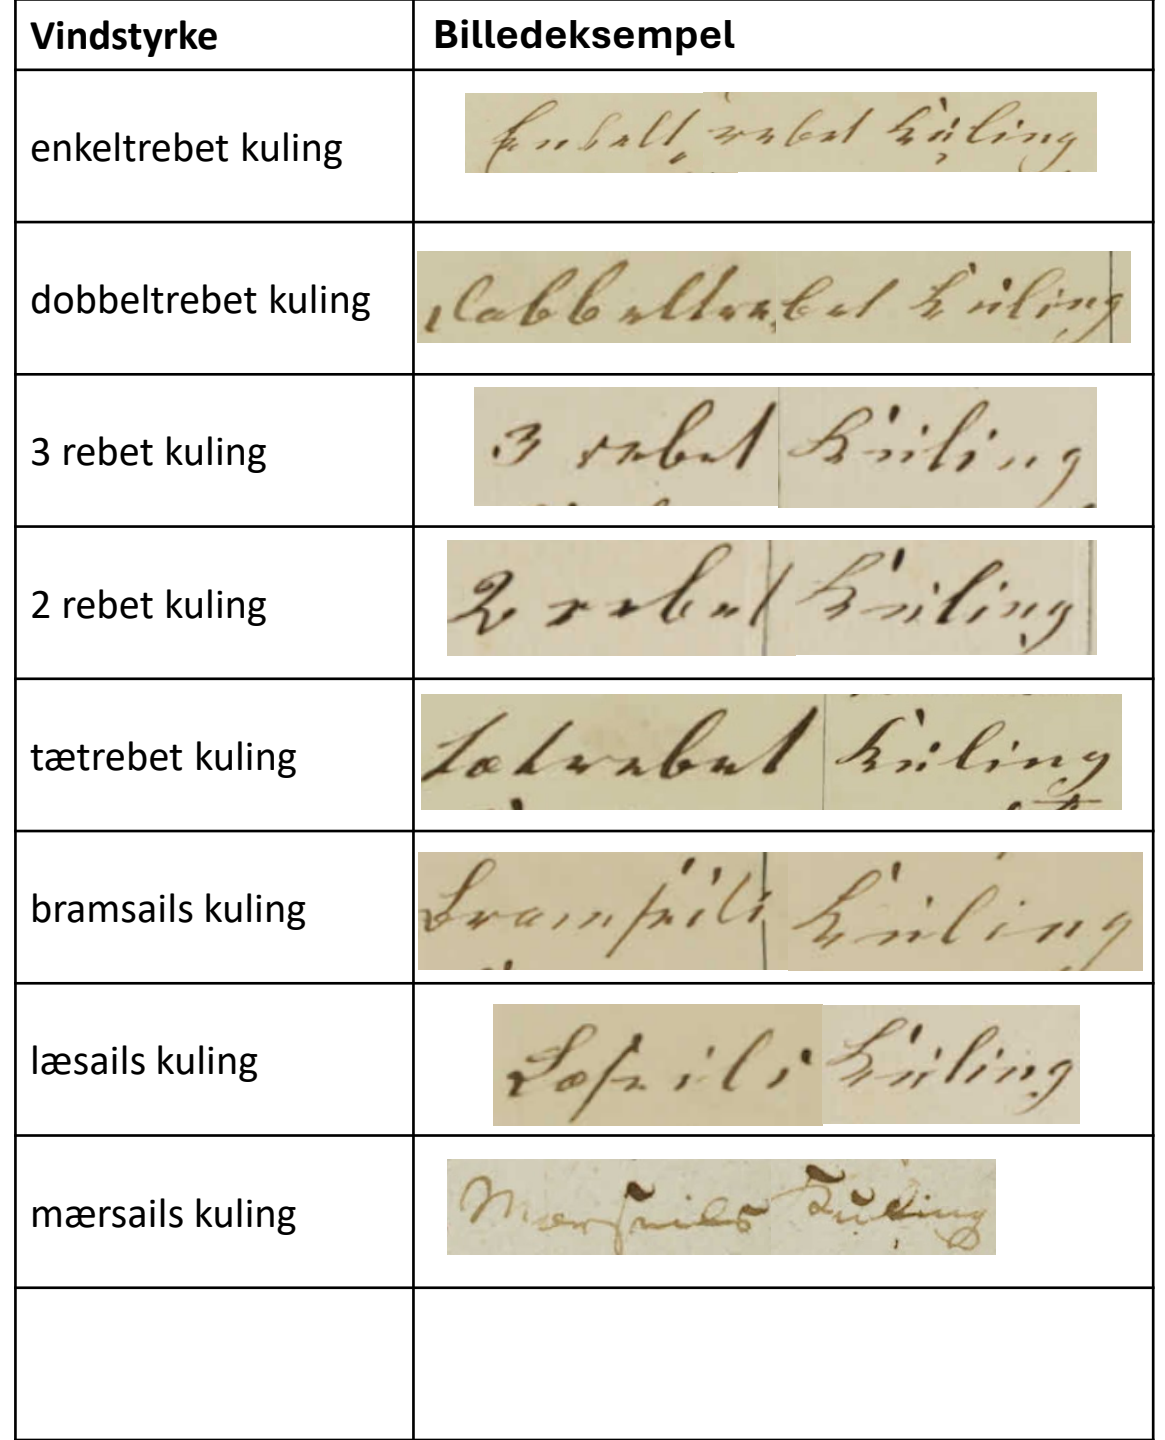 Vindstyrke Billedeksempel
enkeltrebet kuling Enkelt rebet Kuling
dobbeltrebet kuling dobbeltrebet Kuling
3 rebet kuling 3 rebet Kuling
2 rebet kuling 2 rebet Kuling
tætrebet kuling tætrebet Kuling
bramsails kuling Bramseils Kuling
læsails kuling Læseils Kuling
mærsails kuling Mærseils Kuling